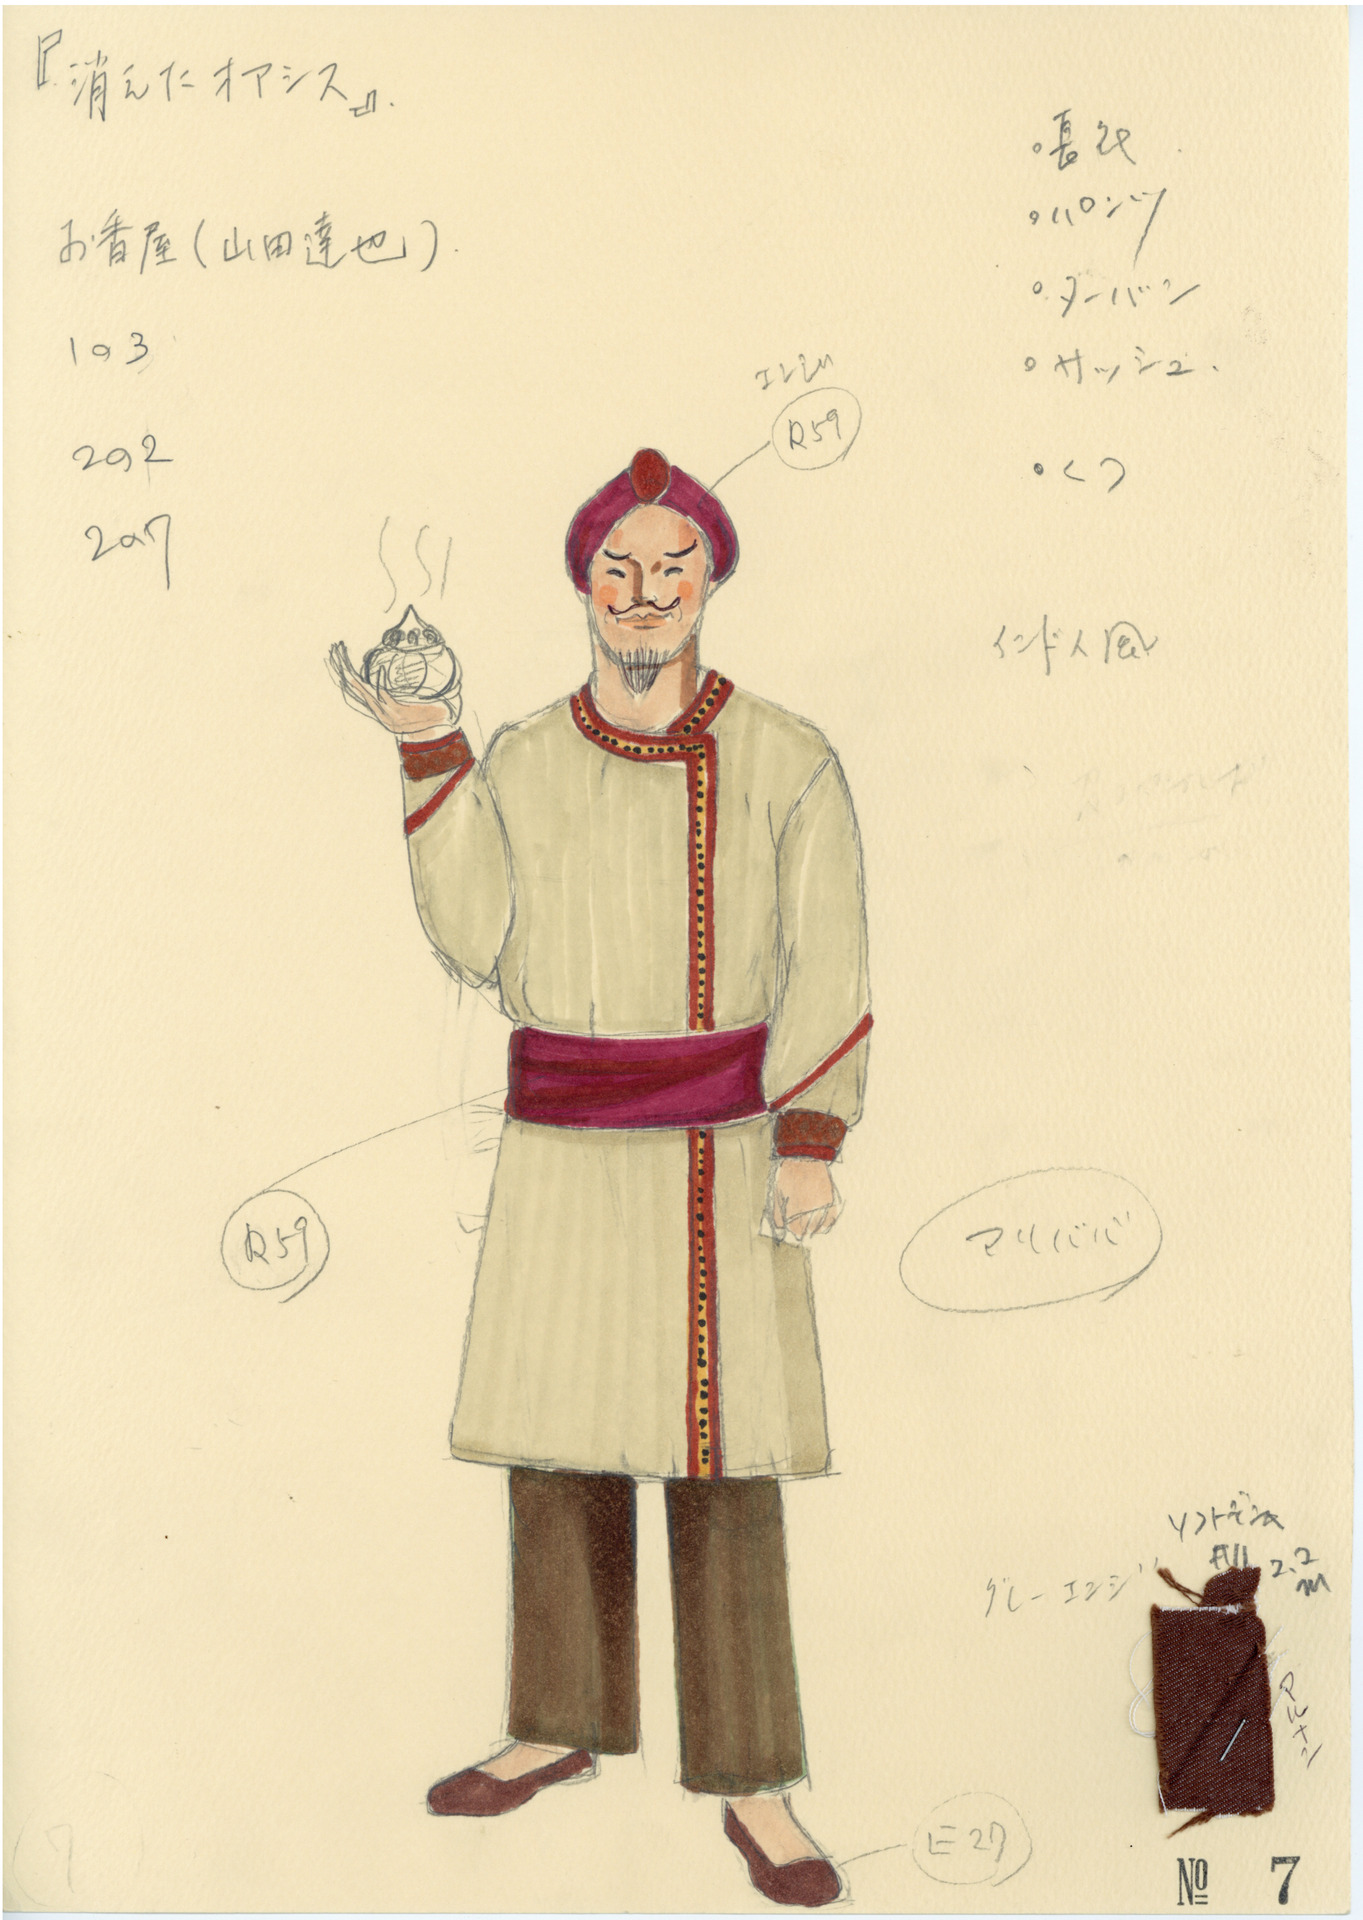 『消えたオアシス』.
お香屋(山田達也).
1の3
2の2
2の7
・長衣
・パンツ
・ターバン
・サッシュ.
・くつ
エンジ
R59
インド人風
R59
マリババ
ソフトデシン
2.2
m
グレーエンジ
マルナン
E27
7
No 7